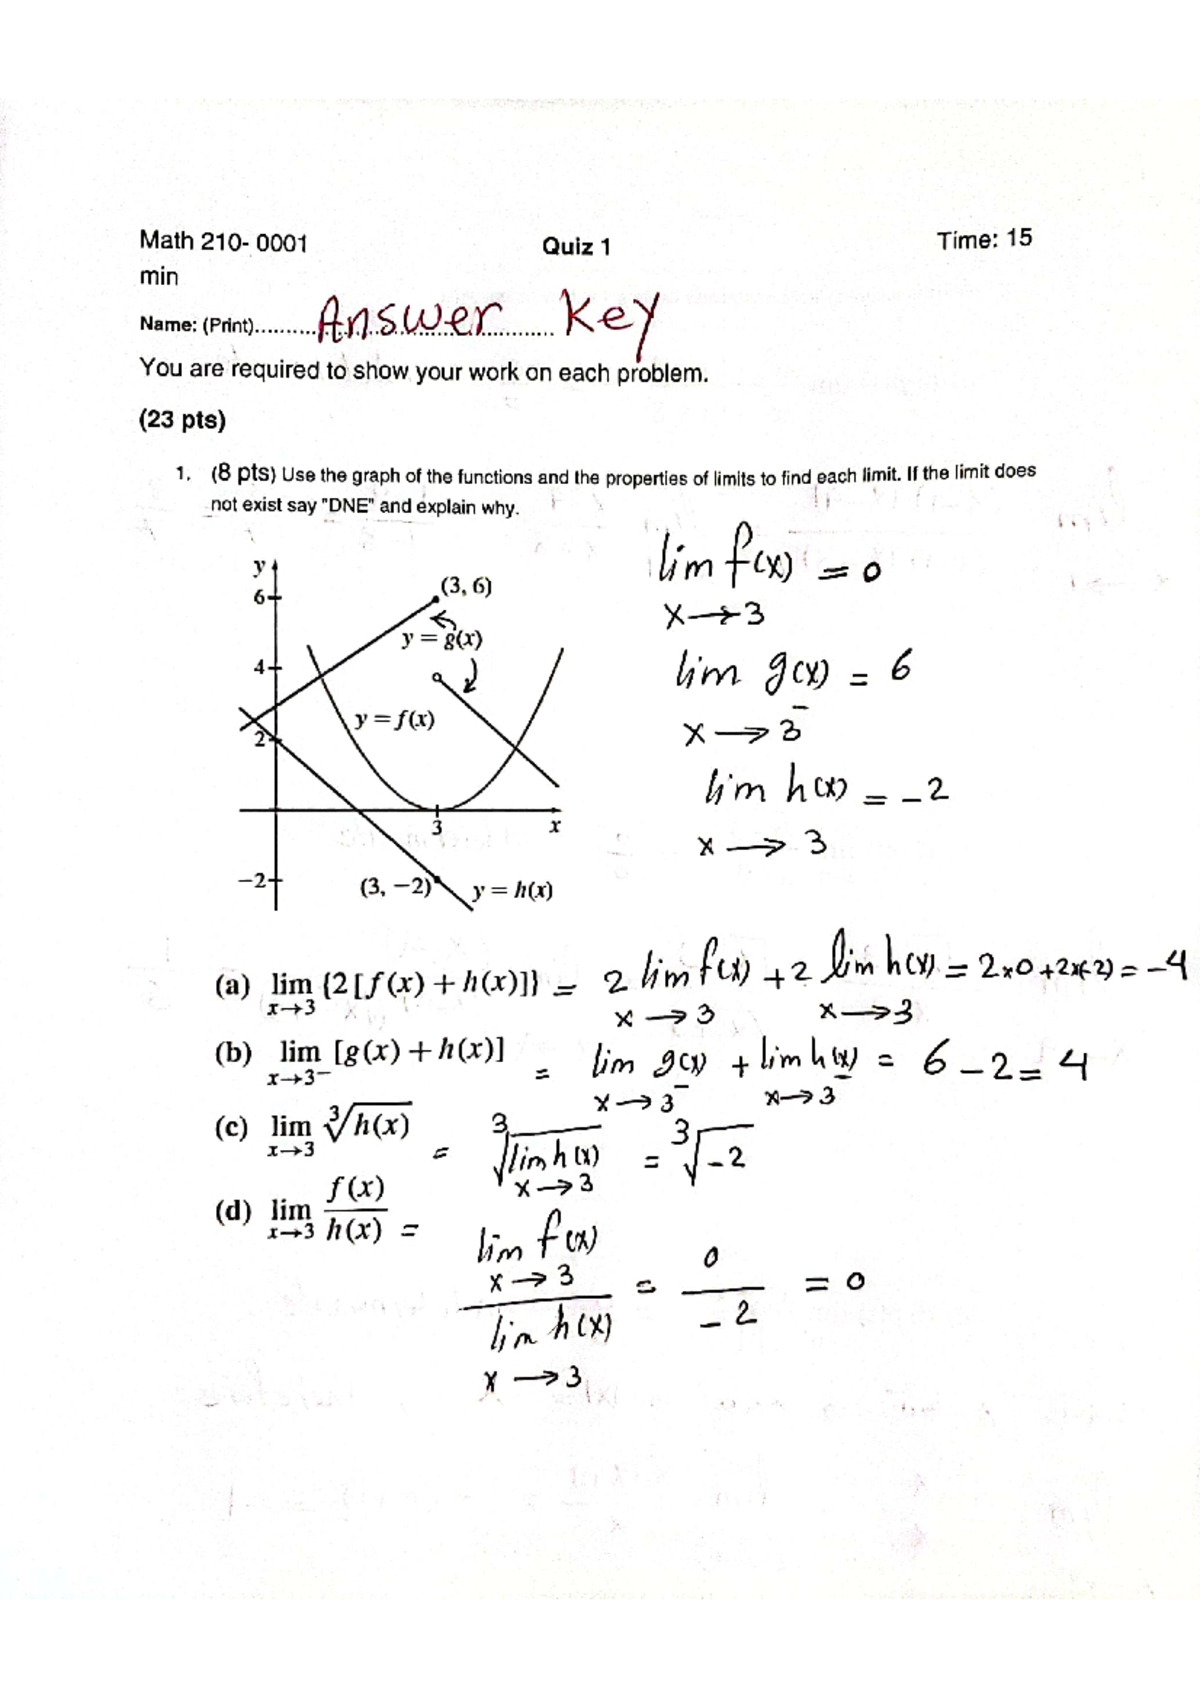 Math 210- 0001 Quiz 1 Time: 15
min
Name: (Print).......... Answer Key
You are required to show your work on each problem.
(23 pts)
1. (8 pts) Use the graph of the functions and the properties of limits to find each limit. If the limit does
not exist say "DNE" and explain why.
y
6
(3, 6)
y = g(x)
4
y = f(x)
2
3
x
-2
(3, -2)
y = h(x)
lim f(x) = 0
x→3
lim g(x) = 6
x→3⁻
lim h(x) = -2
x→3
(a) lim {2[f(x) + h(x)]} = 2 lim f(x) + 2 lim h(x) = 2×0 + 2×(-2) = -4
x→3 x→3 x→3
(b) lim [g(x) + h(x)] = lim g(x) + lim h(x) = 6 - 2 = 4
x→3⁻ x→3⁻ x→3⁻
(c) lim ∛h(x) = ∛lim h(x) = ∛-2
x→3 x→3
(d) lim f(x)/h(x) = lim f(x) / lim h(x) = 0/-2 = 0
x→3 x→3 x→3